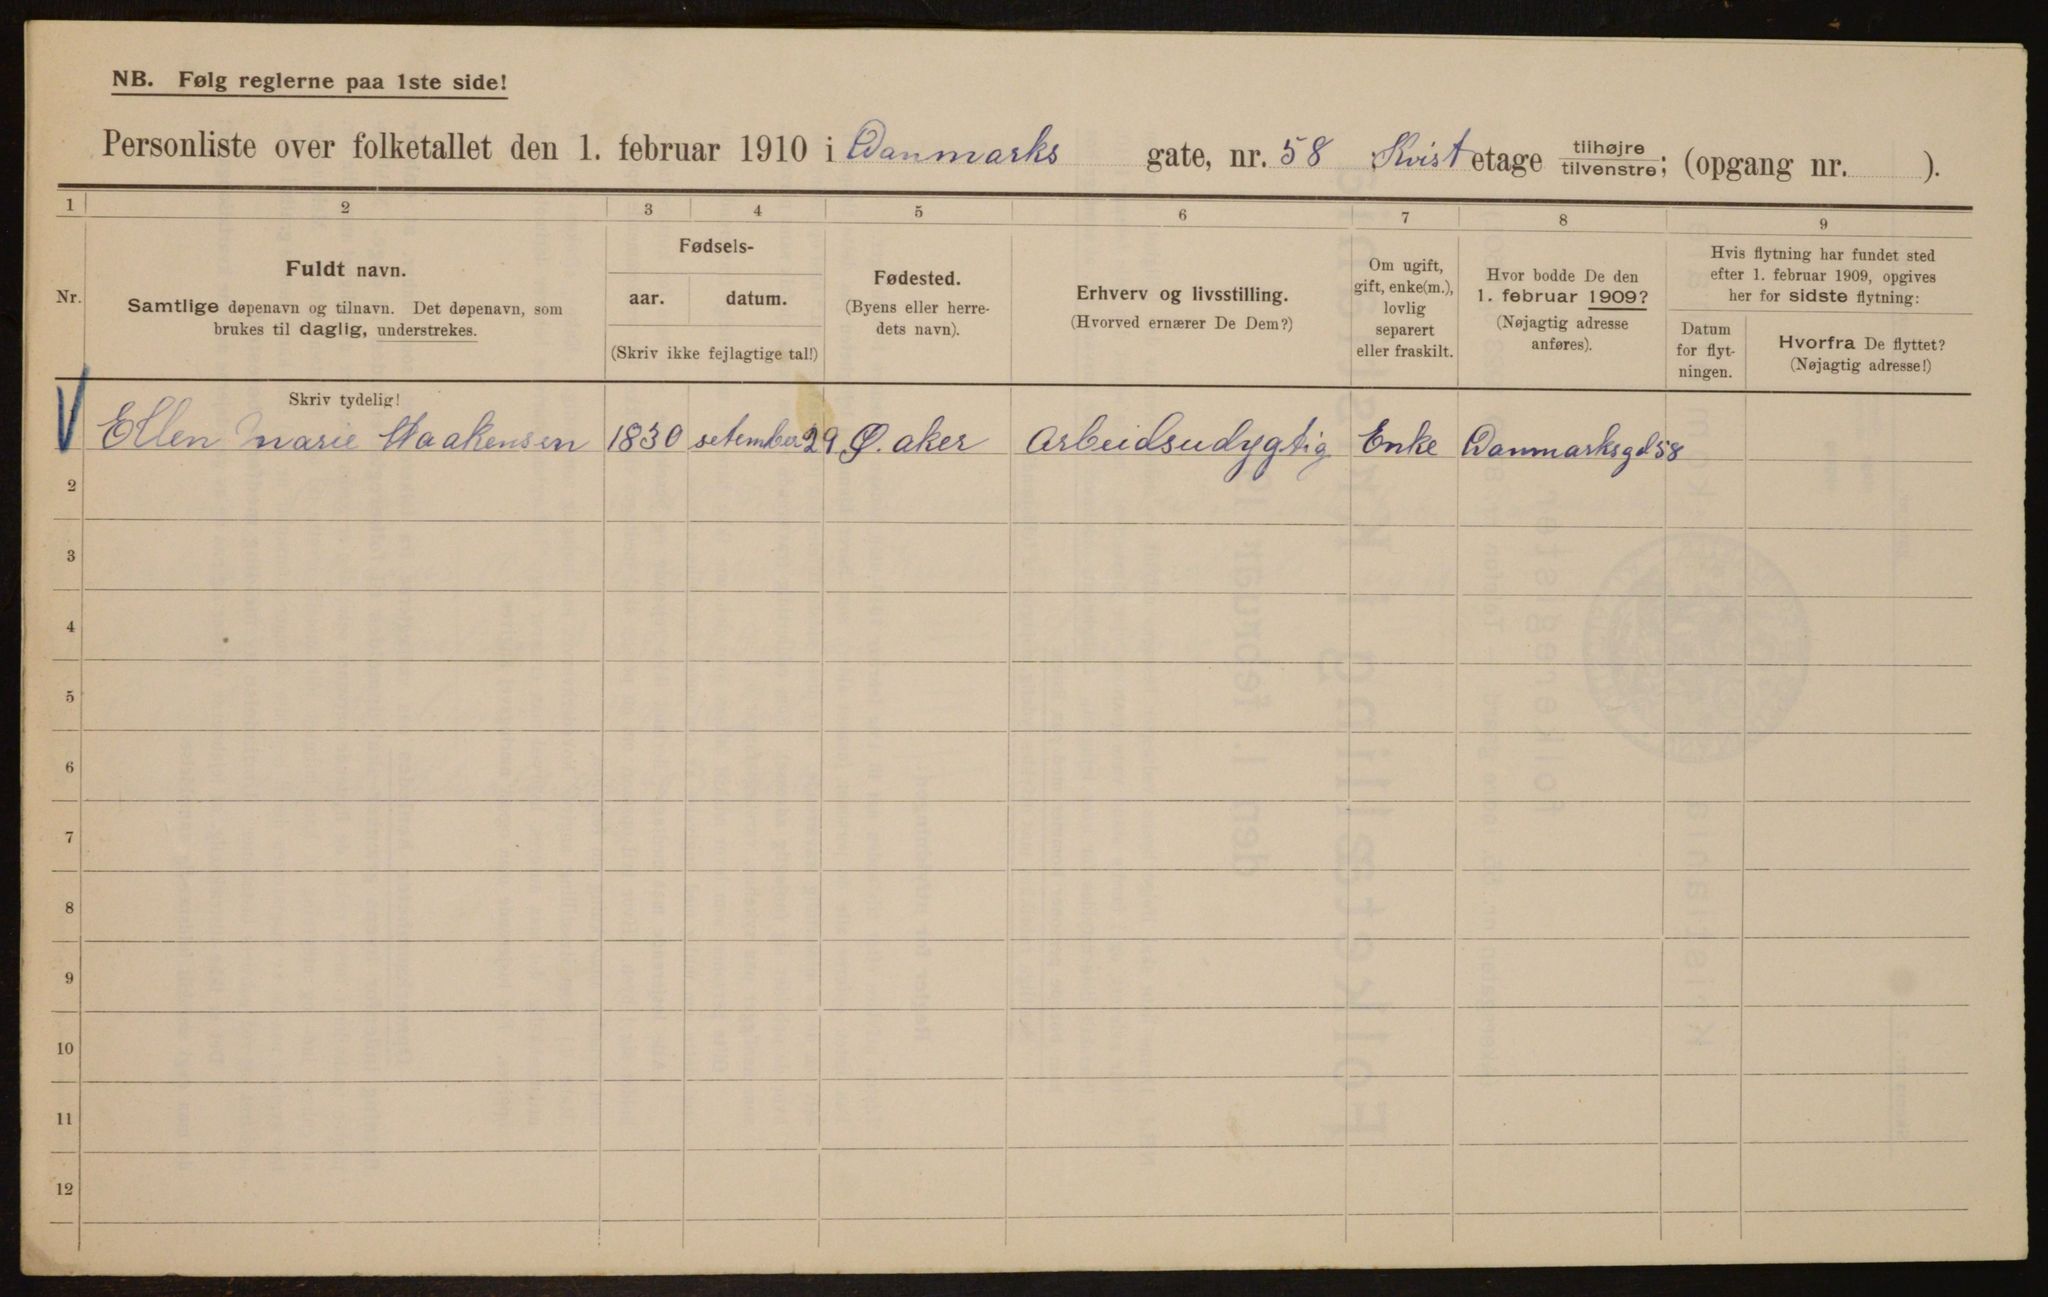 NB. Følg reglerne paa 1ste side!
Personliste over folketallet den 1. februar 1910 i Danmarks gate, nr. 58 Kvist etage tilhøjre tilvenstre; (opgang nr. ).
1 2 3 4 5 6 7 8 9
Nr.
Fuldt navn.
Samtlige døpenavn og tilnavn. Det døpenavn, som
brukes til daglig, understrekes.
Fødsels-
aar. datum.
(Skriv ikke fejlagtige tal!)
Fødested.
(Byens eller herre-
dets navn).
Erhverv og livsstilling.
(Hvorved ernærer De Dem?)
Om ugift,
gift, enke(m.),
lovlig
separert
eller fraskilt.
Hvor bodde De den
1. februar 1909?
(Nøjagtig adresse
anføres).
Hvis flytning har fundet sted
efter 1. februar 1909, opgives
her for sidste flytning:
Datum
for flyt-
ningen.
Hvorfra De flyttet?
(Nøjagtig adresse!)
Skriv tydelig!
Ellen Marie Haakensen 1830 setember 29 Ø. aker Arbeidsudygtig Enke Danmarksgd 58
2
3
4
5
6
7
8
9
10
11
12